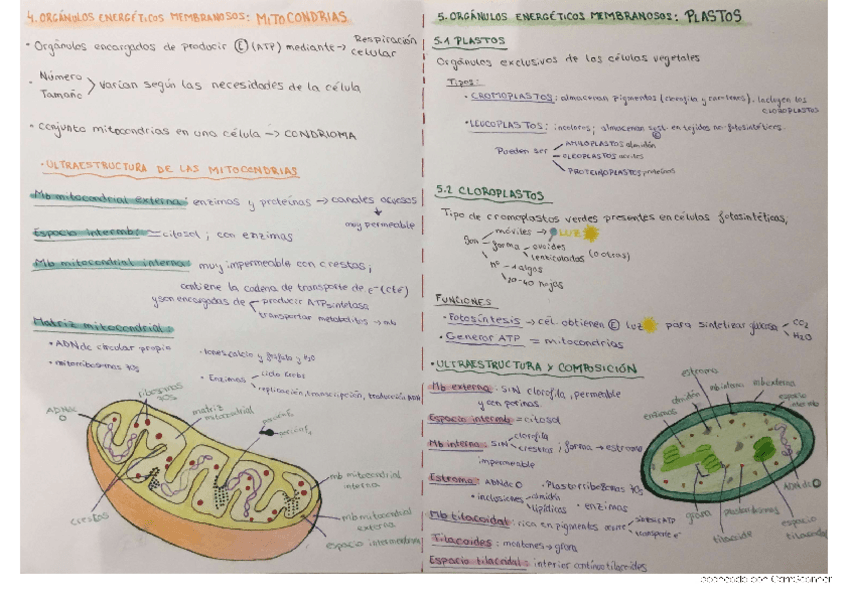 4. ORGÁNULOS ENERGÉTICOS MEMBRANOSOS: MITOCONDRIAS
· Orgánulos encargados de producir Ⓔ (ATP) mediante → Respiración celular
· Número
Tamaño > varían según las necesidades de la célula
· conjunto mitocondrias en una célula → CONDRIOMA
· ULTRAESTRUCTURA DE LAS MITOCONDRIAS
Mb mitocondrial externa: enzimas y proteínas → canales acuosos
↓ muy permeable
Espacio intermb: = citosol; con enzimas
Mb mitocondrial interna: muy impermeable con crestas;
contiene la cadena de transporte de e⁻ (cte)
y son encargadas de < producir ATPsintetasa
transportar metabolitos → mb
Matriz mitocondrial:
· ADNdc circular propio
· mitorribosomas 70s
· Iones calcio y fosfato y H₂O
· Enzimas < ciclo Krebs
replicación, transcripción, traducción ADN
ADNdc
ribosomas 70s
matriz mitocondrial
crestas
mb mitocondrial interna
mb mitocondrial externa
espacio intermembrana
5. ORGÁNULOS ENERGÉTICOS MEMBRANOSOS: PLASTOS
5.1 PLASTOS
Orgánulos exclusivos de las células vegetales
Tipos:
· CROMOPLASTOS: almacenan pigmentos (clorofila y carotenos). Incluyen los CLOROPLASTOS
· LEUCOPLASTOS: incoloros; almacenan sust. en tejidos no fotosintéticos.
Pueden ser
AMILOPLASTOS almidón
OLEOPLASTOS aceites
PROTEINOPLASTOS proteínas
5.2 CLOROPLASTOS
Tipo de cromoplastos verdes presentes en células fotosintéticas;
Son
móviles → LUZ
forma
ovoides
lenticulados (o otras)
nº
1 algas
20-40 hojas
FUNCIONES
· Fotosíntesis → cél. obtienen Ⓔ luz para sintetizar glucosa < CO₂
H₂O
· Generar ATP = mitocondrias
· ULTRAESTRUCTURA Y COMPOSICIÓN
Mb externa: SIN clorofila, permeable
y con porinas.
Espacio intermb = citosol
Mb interna: SIN < clorofila
crestas; forma → estroma
impermeable
Estroma: ADNdc · Plastorribosomas 70s
· inclusiones < almidón
lipídicas · enzimas
Mb tilacoidal: rica en pigmentos
transporte e⁻
Tilacoides: montones → grana
Espacio tilacoidal: interior continuo tilacoides
estroma
almidón
mb interna
mb externa
espacio intermb
enzimas
ADNdc
grana
tilacoide
espacio tilacoidal
Scanned con CamScanner